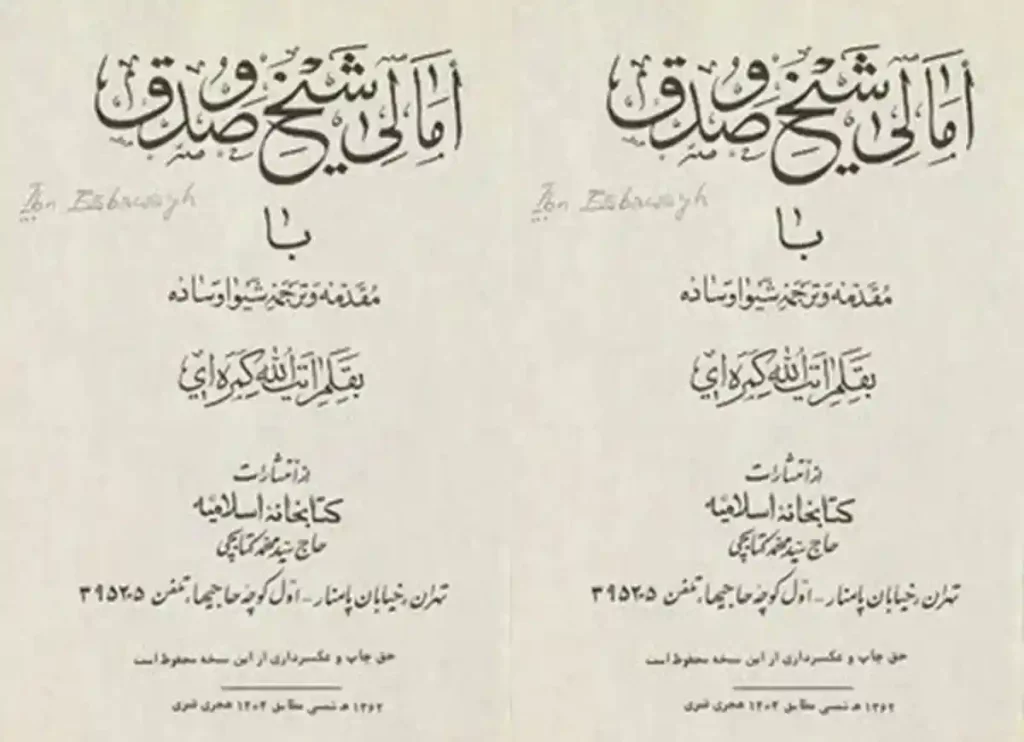 أمالی شیخ صدوق
Ibn
با
مقدمه و ترجمهٔ شیوا و ساده
بقلم آیت الله کمره ای
از انتشارات
کتابخانهٔ اسلامیه
حاج سید محمد کتابچی
تهران، خیابان پامنار - اول کوچه حاجیها، تلفن ۳۹۵۲۰۵
حق چاپ و عکسبرداری از این نسخه محفوظ است
۱۳۶۲ هـ شمسی مطابق ۱۴۰۴ هجری قمری
أمالی شیخ صدوق
Ibn
با
مقدمه و ترجمهٔ شیوا و ساده
بقلم آیت الله کمره ای
از انتشارات
کتابخانهٔ اسلامیه
حاج سید محمد کتابچی
تهران، خیابان پامنار - اول کوچه حاجیها، تلفن ۳۹۵۲۰۵
حق چاپ و عکسبرداری از این نسخه محفوظ است
۱۳۶۲ هـ شمسی مطابق ۱۴۰۴ هجری قمری